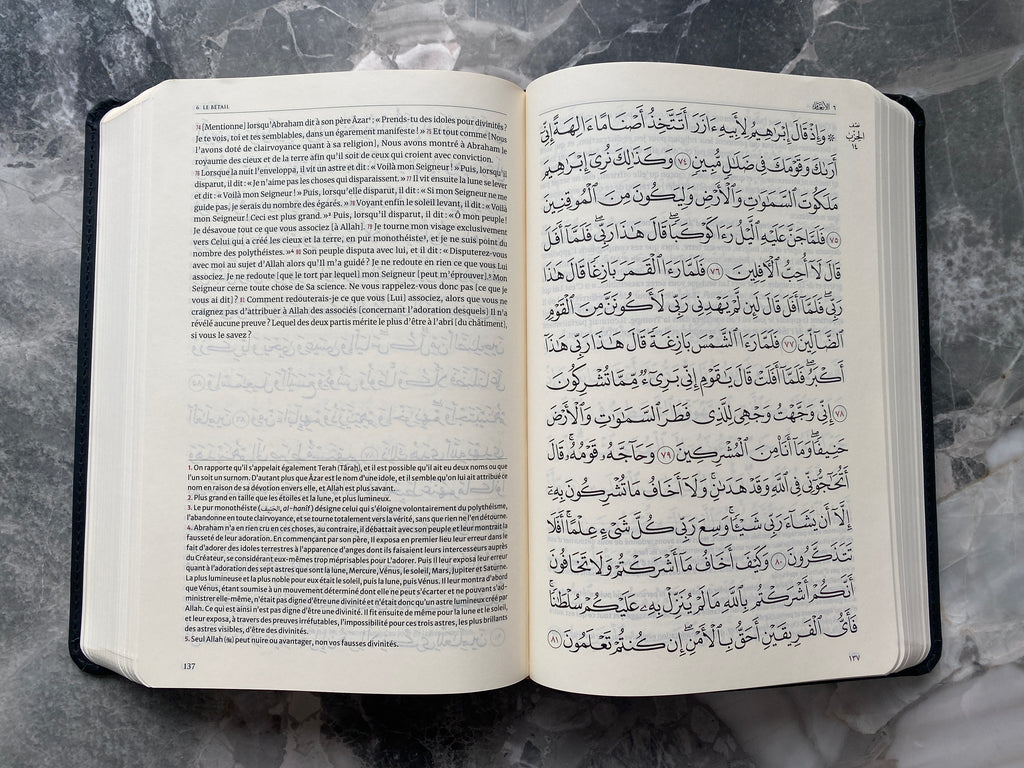 6 LE BÉTAIL
74 [Mentionne] lorsqu'Abraham dit à son père Âzar¹ : « Prends-tu des idoles pour divinités ?
Je te vois, toi et tes semblables, dans un égarement manifeste ! » 75 Et tout comme [Nous
l'avons doté de clairvoyance quant à sa religion], Nous avons montré à Abraham le
royaume des cieux et de la terre afin qu'il soit de ceux qui croient avec conviction.
76 Lorsque la nuit l'enveloppa, il vit un astre et dit : « Voilà mon Seigneur ! » Puis, lorsqu'il
disparut, il dit : « Je n'aime pas les choses qui disparaissent. » 77 Il vit ensuite la lune se lever
et dit : « Voilà mon Seigneur ! » Puis, lorsqu'elle disparut, il dit : « Si mon Seigneur ne me
guide pas, je serais du nombre des égarés. » 78 Voyant enfin le soleil levant, il dit : « Voilà
mon Seigneur ! Ceci est plus grand. »² Puis, lorsqu'il disparut, il dit : « Ô mon peuple !
Je désavoue tout ce que vous associez [à Allah]. 79 Je tourne mon visage exclusivement
vers Celui qui a créé les cieux et la terre, en pur monothéiste³, et je ne suis point du
nombre des polythéistes. »⁴ 80 Son peuple disputa avec lui, et il dit : « Disputerez-vous
avec moi au sujet d'Allah alors qu'Il m'a guidé ? Je ne redoute en rien ce que vous Lui
associez. Je ne redoute [que le tort par lequel] mon Seigneur [peut m'éprouver].⁵ Mon
Seigneur cerne toute chose de Sa science. Ne vous rappellez-vous donc pas [ce que je
vous ai dit] ? 81 Comment redouterais-je ce que vous [Lui] associez, alors que vous ne
craignez pas d'attribuer à Allah des associés [concernant l'adoration desquels] Il n'a
révélé aucune preuve ? Lequel des deux partis mérite le plus d'être à l'abri [du châtiment],
si vous le savez ?
1. On rapporte qu'il s'appelait également Terah (Târaḥ), et il est possible qu'il ait eu deux noms ou que
l'un soit un surnom. D'autant plus que Âzar est le nom d'une idole, et il semble qu'on lui ait attribué ce
nom en raison de sa dévotion envers elle, et Allah est plus savant.
2. Plus grand en taille que les étoiles et la lune, et plus lumineux.
3. Le pur monothéiste (الحَنِيف, al-ḥanîf) désigne celui qui s'éloigne volontairement du polythéisme,
l'abandonne en toute clairvoyance, et se tourne totalement vers la vérité, sans que rien ne l'en détourne.
4. Abraham n'a en rien cru en ces choses, au contraire, il débattait avec son peuple et leur montrait la
fausseté de leur adoration. En commençant par son père, il exposa en premier lieu leur erreur dans le
fait d'adorer des idoles terrestres à l'apparence d'anges dont ils faisaient leurs intercesseurs auprès
du Créateur, se considérant eux-mêmes trop méprisables pour L'adorer. Puis il leur exposa leur erreur
quant à l'adoration des sept astres que sont la lune, Mercure, Vénus, le soleil, Mars, Jupiter et Saturne.
La plus lumineuse et la plus noble pour eux était le soleil, puis la lune, puis Vénus. Il leur montra d'abord
que Vénus, étant soumise à un mouvement déterminé dont elle ne peut s'écarter et ne pouvant s'ad-
ministrer elle-même, n'était pas digne d'être une divinité et n'était donc qu'un astre lumineux créé par
Allah. Ce qui est ainsi n'est pas digne d'être une divinité. Il fit ensuite de même pour la lune et le soleil,
et leur exposa, à travers des preuves irréfutables, l'impossibilité pour ces trois astres, les plus brillants
des astres visibles, d'être des divinités.
5. Seul Allah (ﷻ) peut nuire ou avantager, non vos fausses divinités.
137
٦ الأنعام
نصف
الحزب
١٤
۞ وَإِذْ قَالَ إِبْرَٰهِيمُ لِأَبِيهِ ءَازَرَ أَتَتَّخِذُ أَصْنَامًا ءَالِهَةً إِنِّىٓ
أَرَىٰكَ وَقَوْمَكَ فِى ضَلَٰلٍ مُّبِينٍ ٧٤ وَكَذَٰلِكَ نُرِىٓ إِبْرَٰهِيمَ
مَلَكُوتَ ٱلسَّمَٰوَٰتِ وَٱلْأَرْضِ وَلِيَكُونَ مِنَ ٱلْمُوقِنِينَ
٧٥ فَلَمَّا جَنَّ عَلَيْهِ ٱلَّيْلُ رَءَا كَوْكَبًا ۖ قَالَ هَٰذَا رَبِّى ۖ فَلَمَّآ أَفَلَ
قَالَ لَآ أُحِبُّ ٱلْءَافِلِينَ ٧٦ فَلَمَّا رَءَا ٱلْقَمَرَ بَازِغًا قَالَ هَٰذَا
رَبِّى ۖ فَلَمَّآ أَفَلَ قَالَ لَئِن لَّمْ يَهْدِنِى رَبِّى لَأَكُونَنَّ مِنَ ٱلْقَوْمِ
ٱلضَّآلِّينَ ٧٧ فَلَمَّا رَءَا ٱلشَّمْسَ بَازِغَةً قَالَ هَٰذَا رَبِّى هَٰذَآ
أَكْبَرُ ۖ فَلَمَّآ أَفَلَتْ قَالَ يَٰقَوْمِ إِنِّى بَرِىٓءٌ مِّمَّا تُشْرِكُونَ
٧٨ إِنِّى وَجَّهْتُ وَجْهِىَ لِلَّذِى فَطَرَ ٱلسَّمَٰوَٰتِ وَٱلْأَرْضَ
حَنِيفًا ۖ وَمَآ أَنَا۠ مِنَ ٱلْمُشْرِكِينَ ٧٩ وَحَآجَّهُۥ قَوْمُهُۥ ۚ قَالَ
أَتُحَٰٓجُّوٓنِّى فِى ٱللَّهِ وَقَدْ هَدَىٰنِ ۚ وَلَآ أَخَافُ مَا تُشْرِكُونَ بِهِۦٓ
إِلَّآ أَن يَشَآءَ رَبِّى شَيْـًٔا ۗ وَسِعَ رَبِّى كُلَّ شَىْءٍ عِلْمًا ۗ أَفَلَا
تَتَذَكَّرُونَ ٨٠ وَكَيْفَ أَخَافُ مَآ أَشْرَكْتُمْ وَلَا تَخَافُونَ
أَنَّكُمْ أَشْرَكْتُم بِٱللَّهِ مَا لَمْ يُنَزِّلْ بِهِۦ عَلَيْكُمْ سُلْطَٰنًا ۚ
فَأَىُّ ٱلْفَرِيقَيْنِ أَحَقُّ بِٱلْأَمْنِ ۖ إِن كُنتُمْ تَعْلَمُونَ ٨١
١٣٧